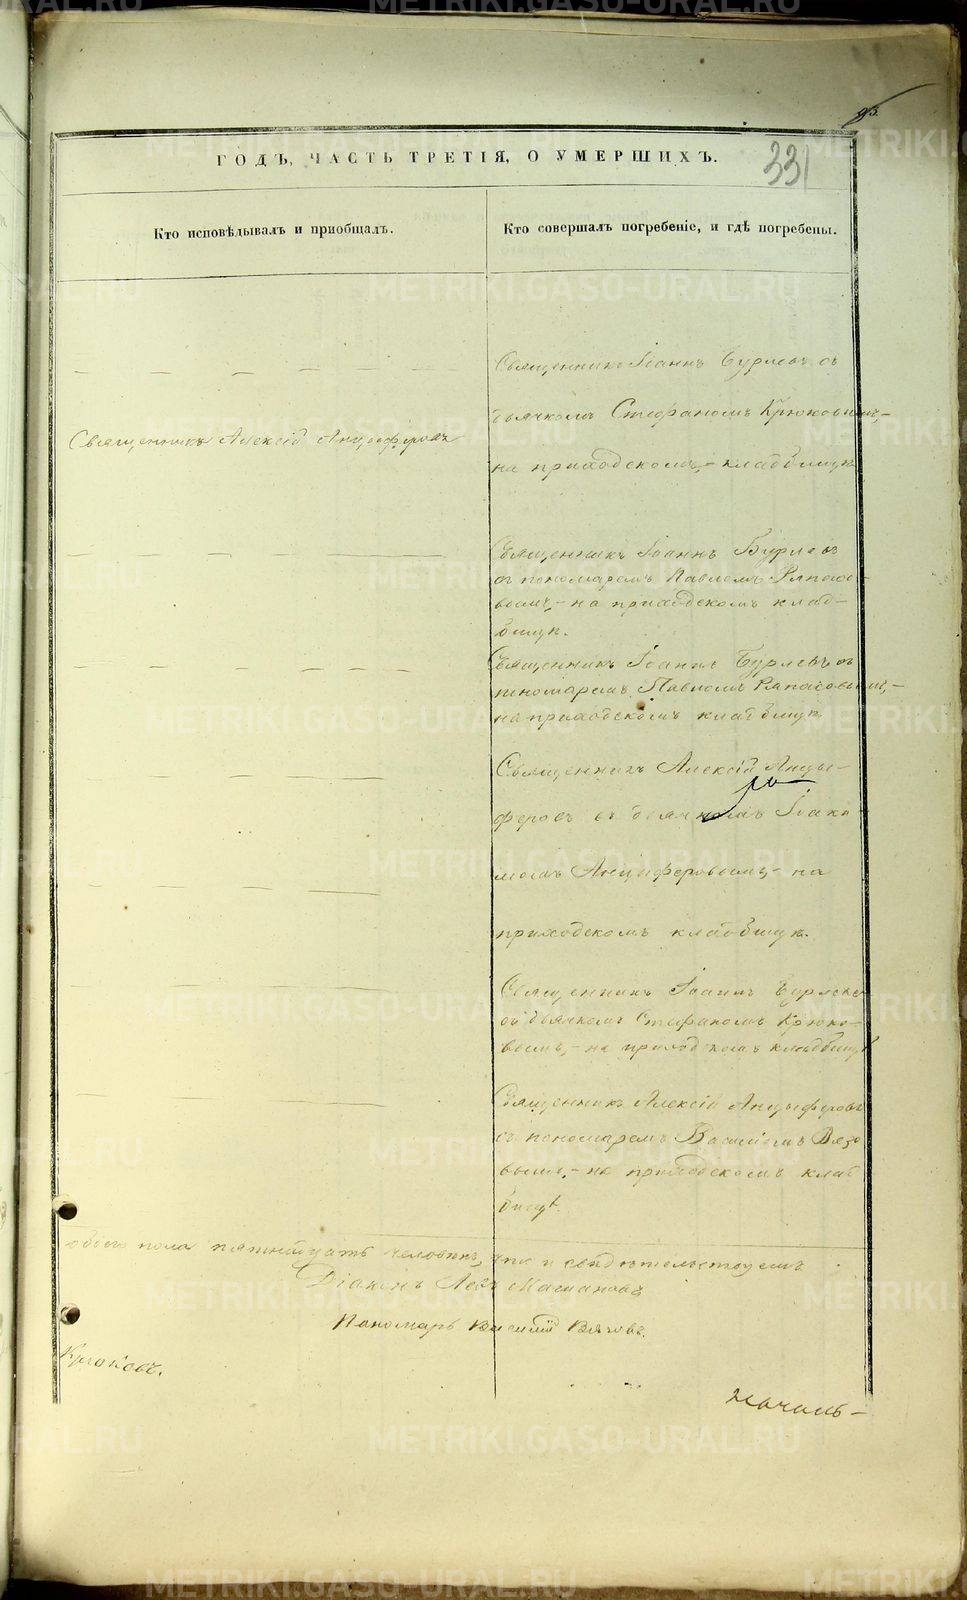 95.
ГОДЪ, ЧАСТЬ ТРЕТІЯ, О УМЕРШИХЪ.
331
Кто исповѣдывалъ и пріобщалъ.
Кто совершалъ погребеніе, и гдѣ погребены.
Священникъ Іоаннъ Бурлевъ съ
дьячкомъ Стефаномъ Крюковымъ,-
Священникъ Алексій Анцыферовъ
на приходскомъ,- кладбищѣ
Священникъ Іоаннъ Бурлевъ
съ пономаремъ Павломъ Ряпасо-
вымъ,- на приходскомъ клад-
бищѣ.
Священникъ Іоаннъ Бурлевъ съ
пономаремъ Павломъ Ряпасовымъ,-
на приходскомъ кладбищѣ
Священникъ Алексій Анцы-
феровъ съ дьячкомъ Іако-
момъ Анцыферовымъ,- на
приходскомъ кладбищѣ.
Священникъ Іоаннъ Бурлевъ
съ дьячкомъ Стефаномъ Крюко-
вымъ,- на приходскомъ кладбищѣ
Священникъ Алексій Анцыферовъ
съ пономаремъ Василіемъ Вязо
вымъ,- на приходскомъ клад
бищѣ.
обоего пола пятнадцать человѣкъ, что и свидѣтельствуемъ
Діаконъ Левъ
Пономарь Василій Вязовъ.
Крюковъ.
METRIKI.GASO-URAL.RU